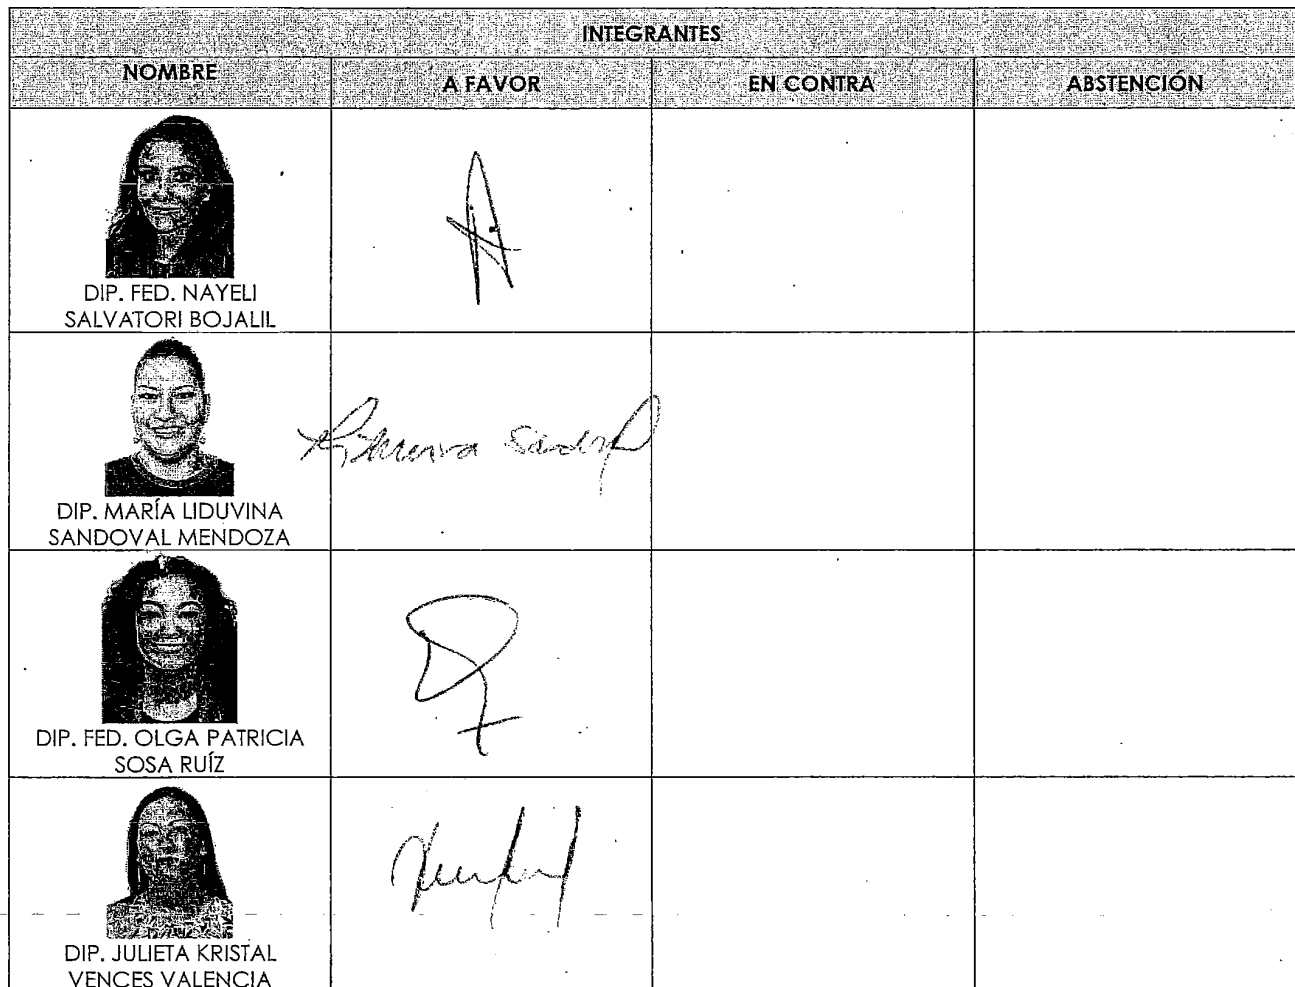 INTEGRANTES
NOMBRE A FAVOR EN CONTRA ABSTENCIÓN
DIP. FED. NAYELI
SALVATORI BOJALIL
DIP. MARÍA LIDUVINA
SANDOVAL MENDOZA
DIP. FED. OLGA PATRICIA
SOSA RUÍZ
DIP. JULIETA KRISTAL
VENCES VALENCIA